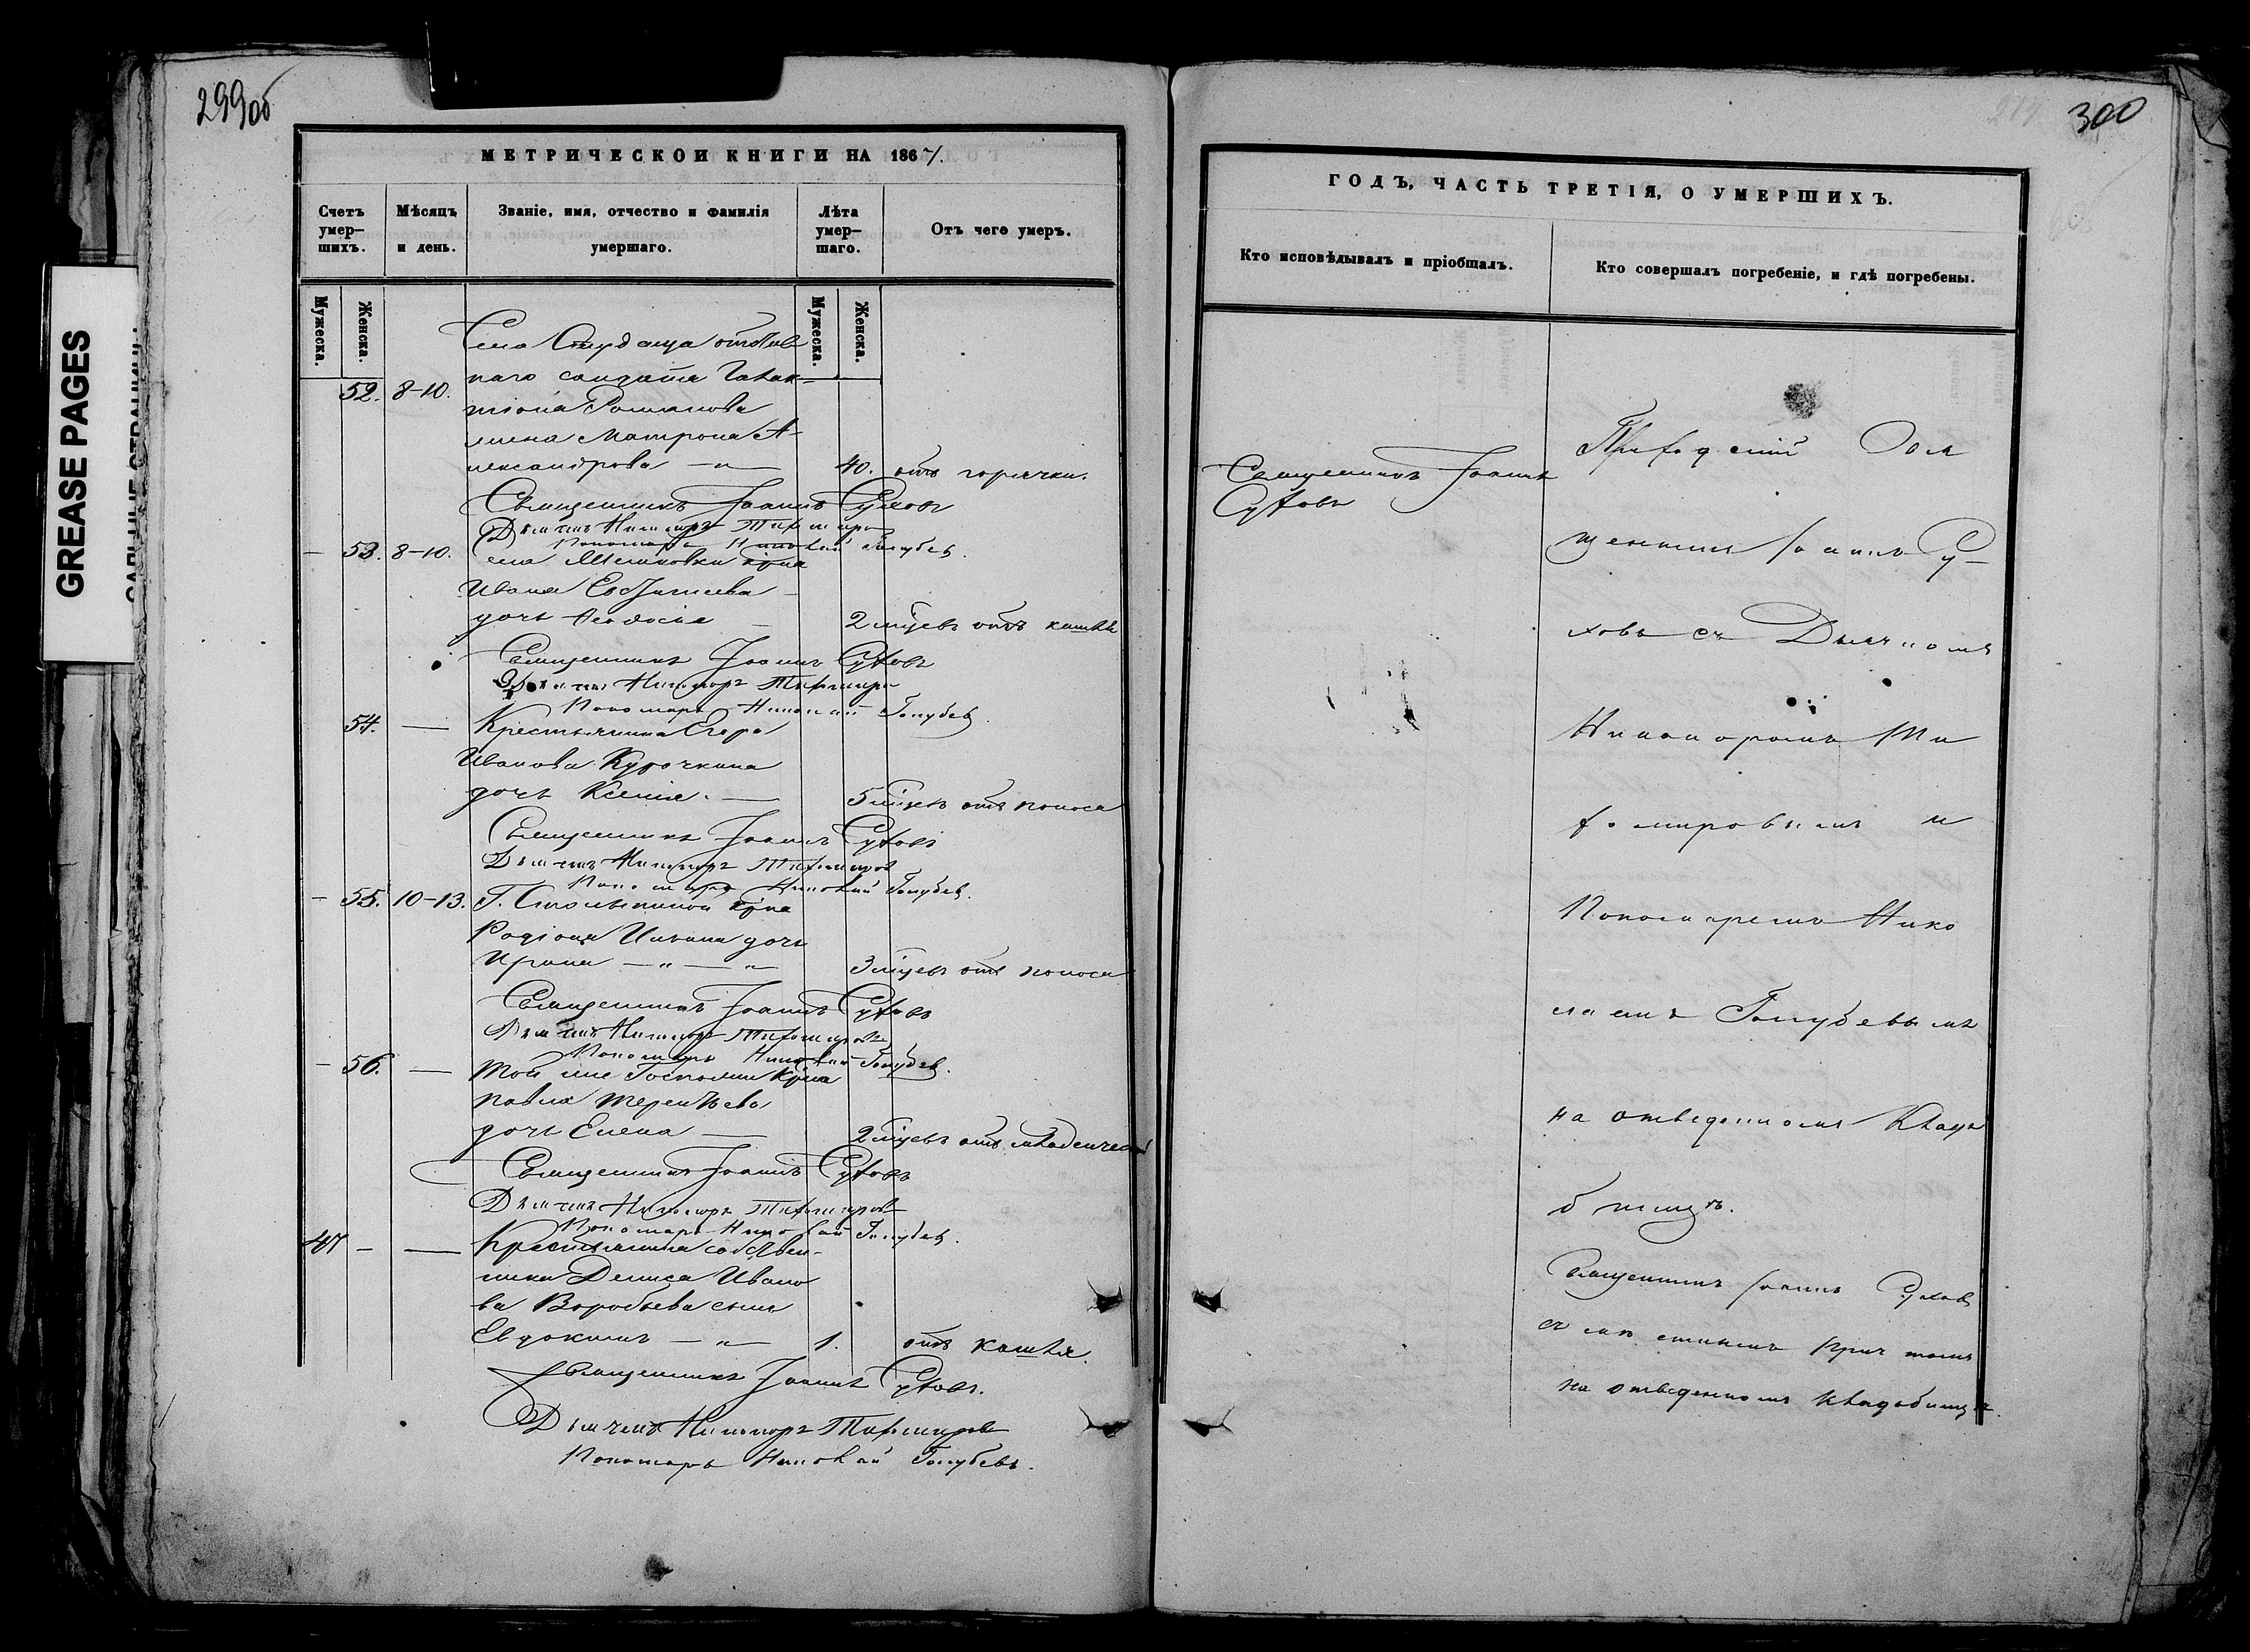 299об
МЕТРИЧЕСКОЙ КНИГИ НА 1867.
Счетъ умер-шихъ.
Мѣсяцъ и день.
Званіе, имя, отчество и фамилія умершаго.
Лѣта умер-шаго.
Отъ чего умеръ.
Мужеска.
Женска.
Мужеска.
Женска.
Села Студенца
52. 8-10. наго солдата Галак-
тіона Романова
жена Матрона А-
лександрова 40. отъ горячки.
Священникъ Іоаннъ Суховъ
Дьячекъ Никаноръ Тихомировъ
Пономарь Николай Голубев.
53. 8-10. села Шемановки крна
Ивана Евстигнеева
дочь Феодосія 2 мцевъ отъ кашля
Священникъ Іоаннъ Суховъ
Дьячекъ Никаноръ Тихомировъ
Пономарь Николай Голубев.
54. — Крестьянина Егора
Иванова Курочкина
дочь Ксенія. 5 мцевъ отъ поноса
Священникъ Іоаннъ Суховъ
Дьячекъ Никаноръ Тихомировъ
Пономарь Николай Голубев.
55. 10-13. Г. Столыпиной крна
Родіона дочь
Ирина 3 мцевъ отъ поноса
Священникъ Іоаннъ Суховъ
Дьячекъ Никаноръ Тихомировъ
Пономарь Николай Голубев.
56. — Той же Госпожи крна
Павла Терентьева
дочь Елена 2 мцевъ отъ младенческ
Священникъ Іоаннъ Суховъ
Дьячекъ Никаноръ Тихомировъ
Пономарь Николай Голубев.
47 — — Крестьянина собствен-
ника Дениса Ивано
ва Воробьева сынъ
Евдокимъ 1. отъ кашля.
Священникъ Іоаннъ Суховъ.
Дьячекъ Никаноръ Тихомировъ
Пономарь Николай Голубевъ.
300
ГОДЪ, ЧАСТЬ ТРЕТІЯ, О УМЕРШИХЪ.
Кто исповѣдывалъ и пріобщалъ.
Кто совершалъ погребеніе, и гдѣ погребены.
Священникъ Іоаннъ
Суховъ
Приходскій Свя
щенникъ Іоаннъ Су-
ховъ съ Дьячкомъ
Никаноромъ Ти
хомировымъ и
Пономаремъ Нико
лаемъ Голубевымъ
на отведенномъ Клад
бищѣ.
Священникъ Іоаннъ Сухов
съ причтомъ
на отведенномъ кладбищѣ.
GREASE PAGES